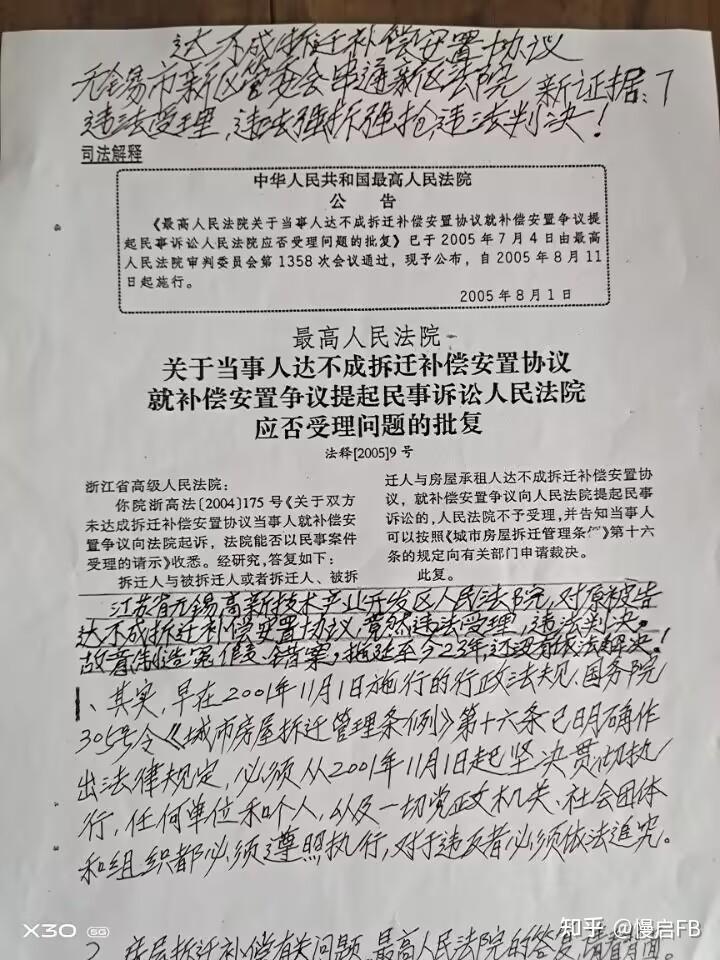 达不成拆迁补偿安置协议
无锡市新区管委会串通新区法院 新证据:7
违法受理,违法强拆强抢,违法判决!
司法解释
中华人民共和国最高人民法院
公 告
《最高人民法院关于当事人达不成拆迁补偿安置协议就补偿安置争议提
起民事诉讼人民法院应否受理问题的批复》已于2005年7月4日由最高
人民法院审判委员会第1358次会议通过,现予公布,自2005年8月11
日起施行。
2005年8月1日
最高人民法院
关于当事人达不成拆迁补偿安置协议
就补偿安置争议提起民事诉讼人民法院
应否受理问题的批复
法释[2005]9号
浙江省高级人民法院:
你院浙高法〔2004〕175号《关于双方
未达成拆迁补偿安置协议当事人就补偿安
置争议向法院起诉,法院能否以民事案件
受理的请示》收悉。经研究,答复如下:
拆迁人与被拆迁人或者拆迁人、被拆
迁人与房屋承租人达不成拆迁补偿安置协
议,就补偿安置争议向人民法院提起民事
诉讼的,人民法院不予受理,并告知当事人
可以按照《城市房屋拆迁管理条 》第十六
条的规定向有关部门申请裁决。
此复。
江苏省无锡高新技术产业开发区人民法院,对原被告
达不成拆迁补偿安置协议,竟然违法受理,违法判决。
故意制造冤、假、错案,拖延至今23年,还没有依法解决!
1、其实,早在2001年11月1日施行的行政法规、国务院
305号令《城市房屋拆迁管理条例》第十六条已明确作
出法律规定,必须从2001年11月1日起坚决贯彻执
行,任何单位和个人,以及一切党政机关、社会团体
和组织都必须遵照执行,对于违反者必须依法追究。
2、房屋拆迁补偿有关问题,最高人民法院的答复,请看背面。
X30 5G
知乎 @慢启FB